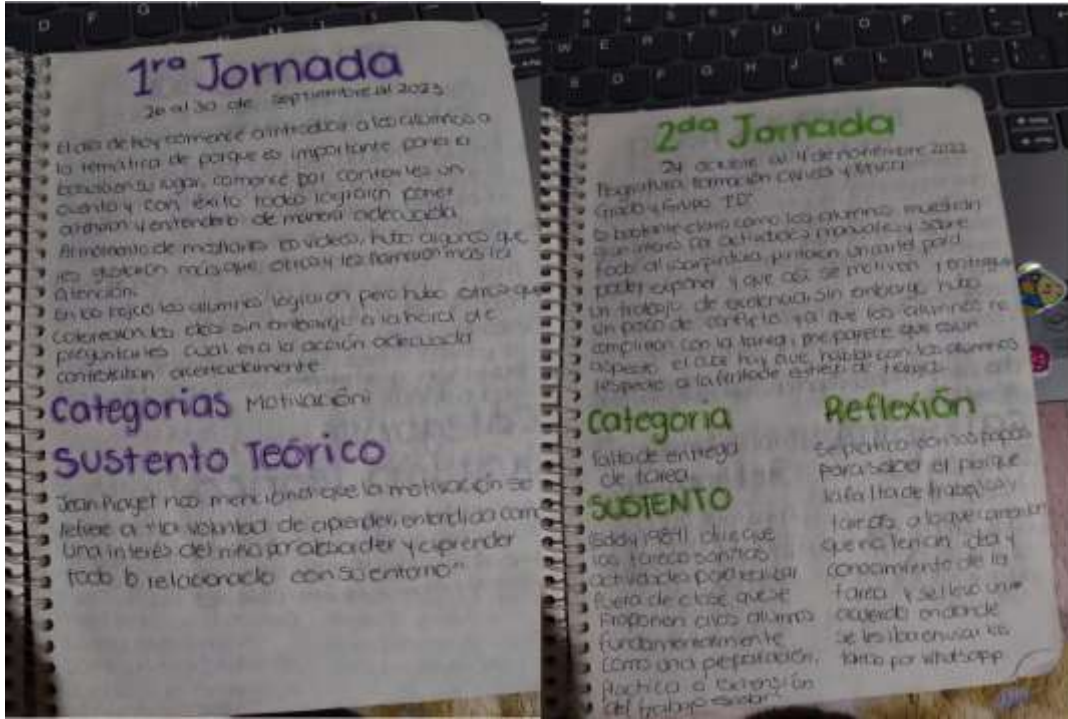 1ra Jornada
26 al 30 de septiembre al 2023
El dia de hoy comencé a introducir a los alumnos a
la temática de porque es importante poner la
basura en su lugar, comencé por contarles un
cuento y con éxito todos lograron poner
atención y entenderlo de manera adecuada
Al momento de mostrarles los videos, hubo algunos que
les gustaron más que otros y les llamaron más la
atención.
En los los alumnos lograron pero hubo otros que
colorearon los dos sin embargo a la hora de
preguntarles cuál era la acción adecuada
contestaban acertadamente
Categorías Motivación
Sustento Teórico
Jean Piaget nos menciona que la motivación se
refiere a "la voluntad de aprender, entendida como
una interés del niño por absorber y aprender
todo lo relacionado con su entorno"
2da Jornada
24 octubre al 4 de noviembre 2022
Asignatura: Formación Cívica y Ética
Grado y Grupo 1°D
Es bastante claro como los alumnos muestran
gran interés por actividades manuales y sobre
todo al usar pintura, pintaron un cartel para
poder exponer y que así se motiven y entreguen
un trabajo de excelencia, sin embargo hubo
un poco de conflicto ya que los alumnos no
cumplieron con la tarea, me parece que es un
aspecto el cual hay que hablar con los alumnos
respecto a la falta de entrega de trabajos
Categoría
Falta de entrega
de tarea
SUSTENTO
(Eddy 1984) dice que
las tareas son las
actividades para realizar
fuera de clase que se
Proponen a los alumnos
fundamentalmente
como una preparación,
práctica o extensión
del trabajo escolar
Reflexión
Se platicó con los papás
para saber el porque
la falta de trabajos y
tareas, a lo que comentaron
que no tenían idea y
conocimiento de la
tarea y se llevó un
acuerdo en donde
se les iba enviar las
tareas por whatsapp